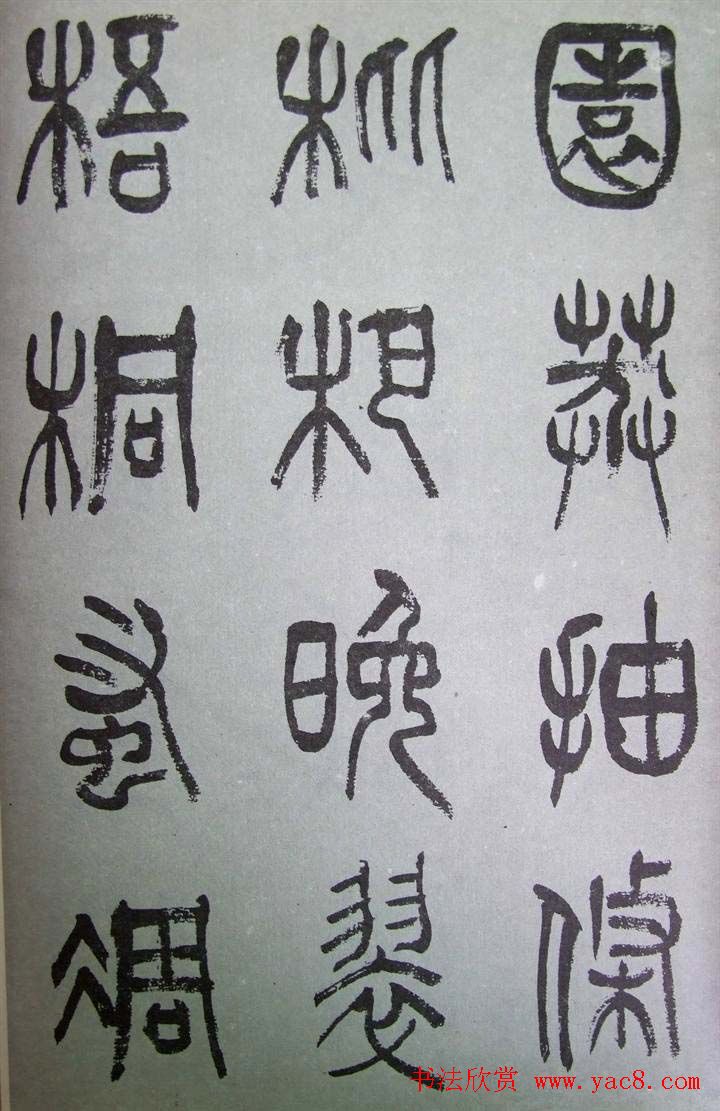 園莽抽條
枇杷晚翠
梧桐蚤凋
书法欣赏 www.yac8.com